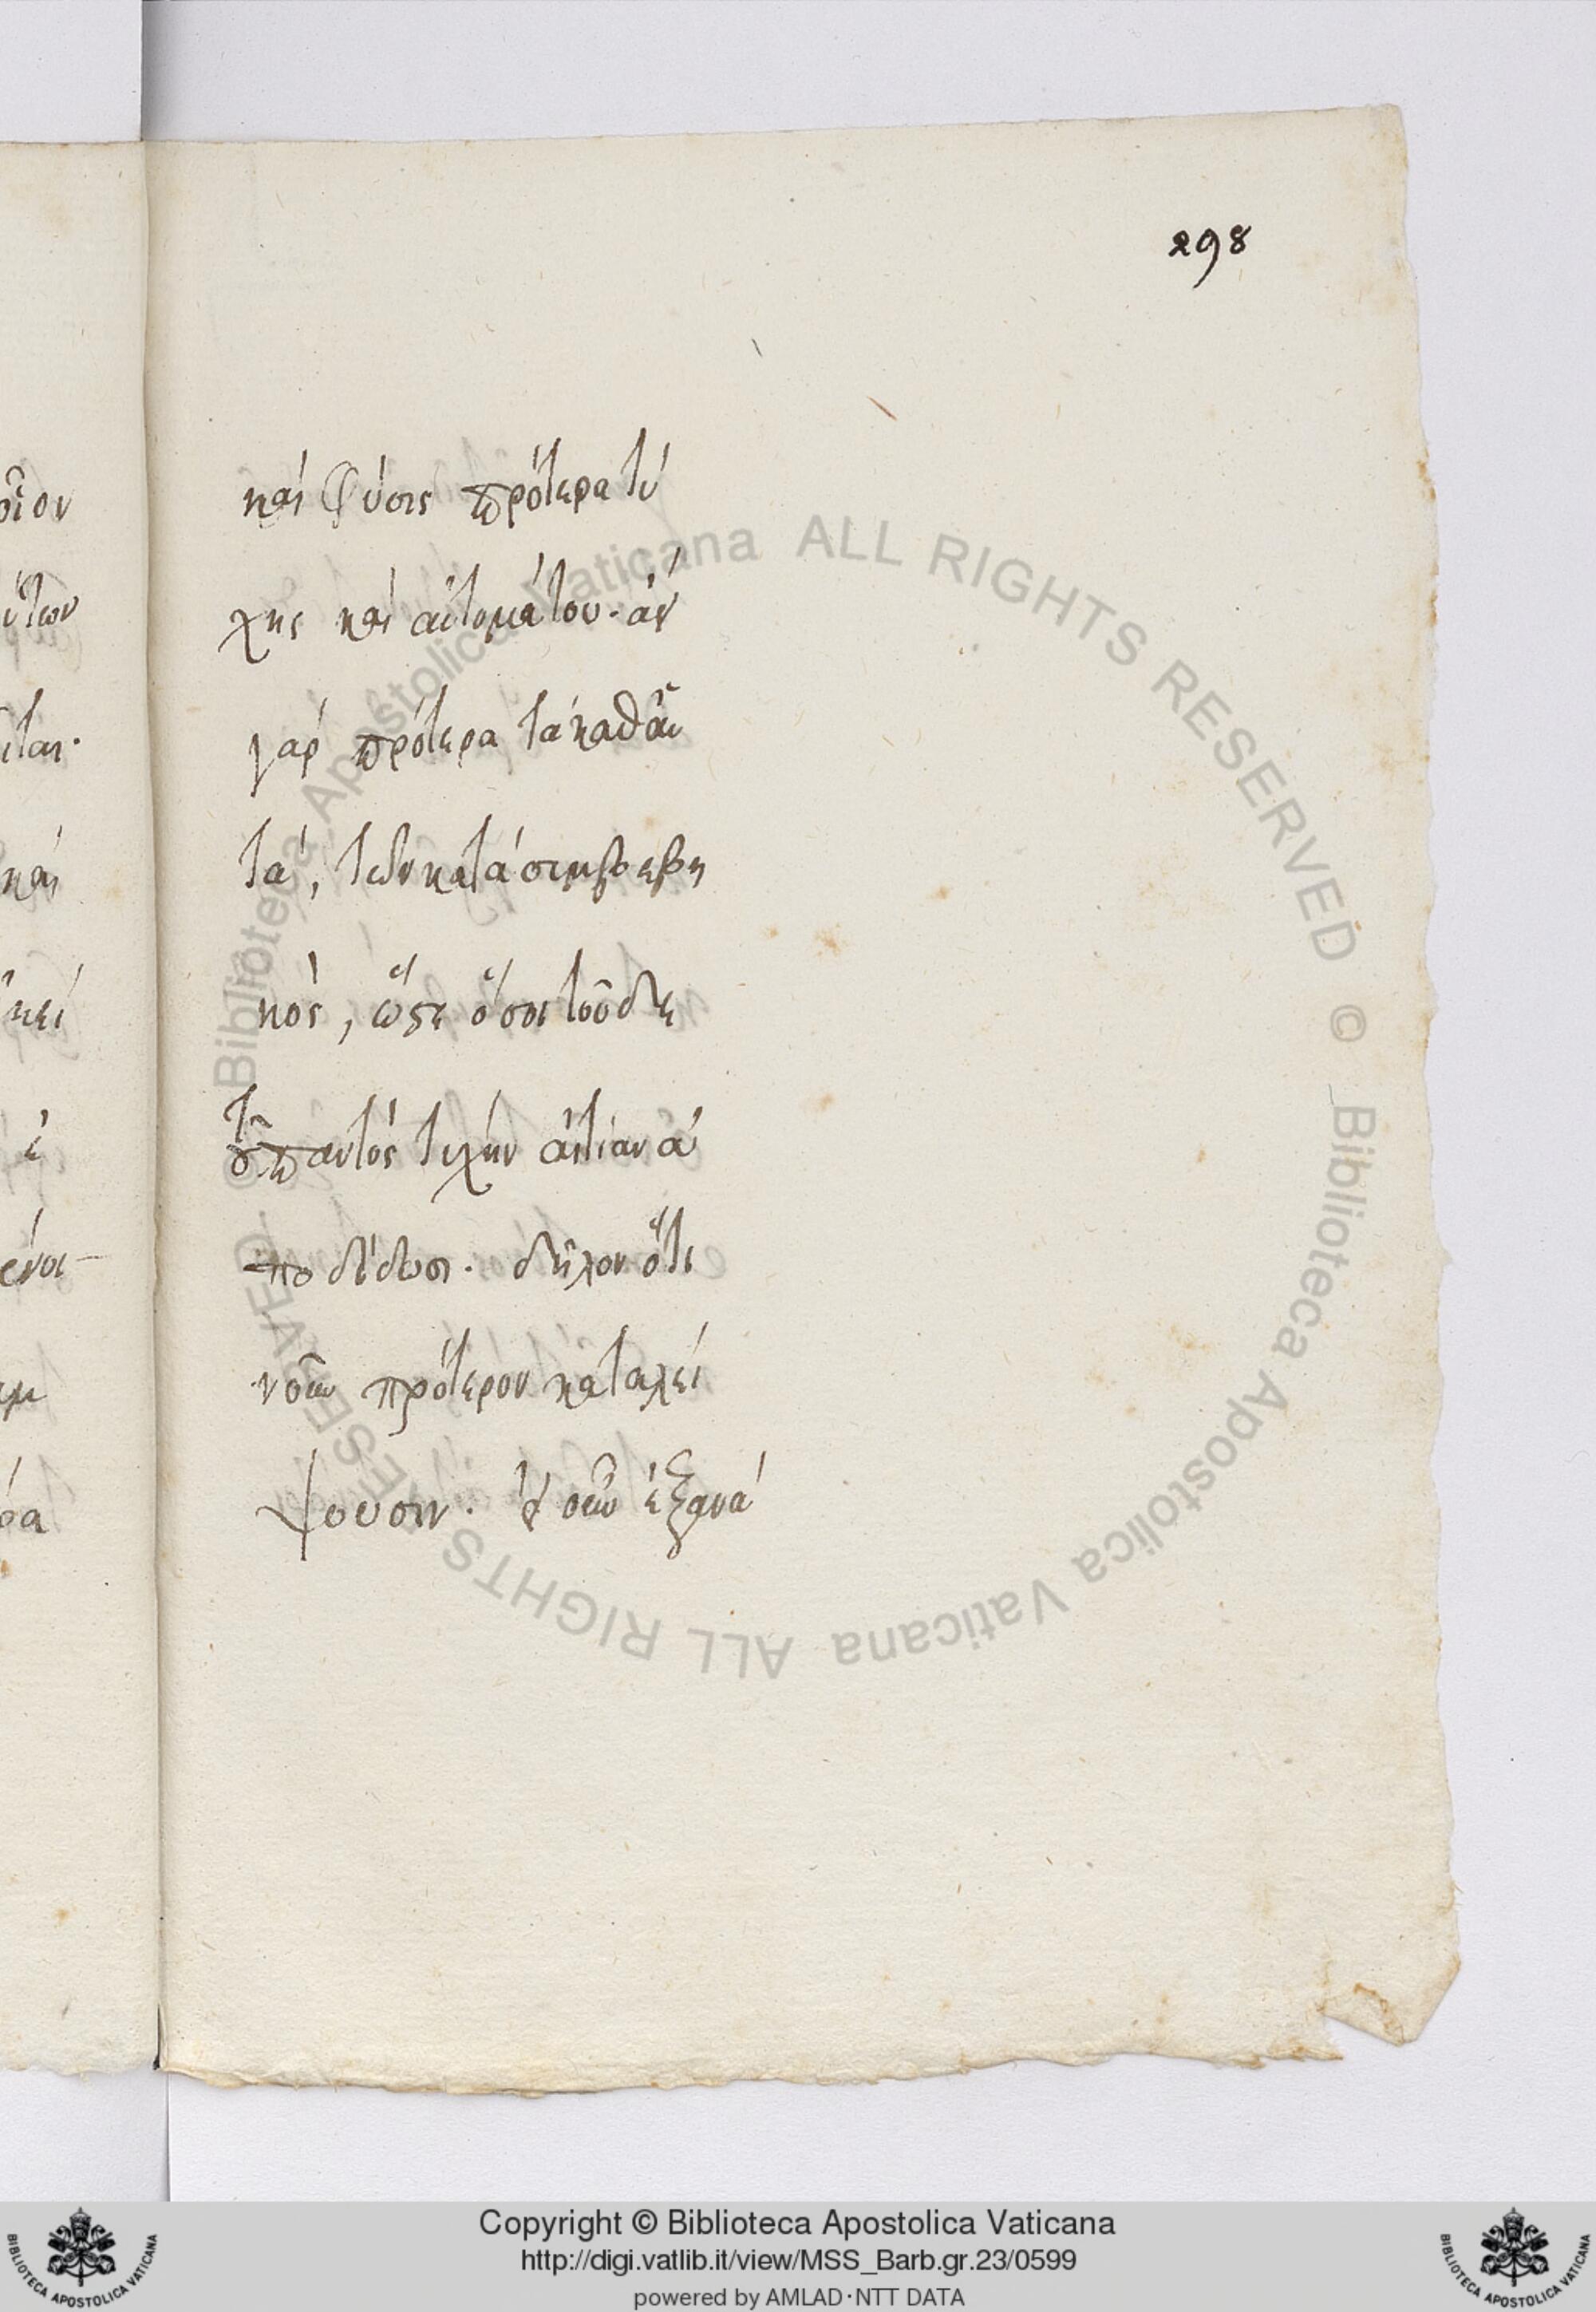 298
καὶ φύσις πρότερα τύ
χης καὶ αὐτομάτου. ἀεὶ
γὰρ πρότερα τὰ καθ' αὑ
τά, τῶν κατὰ συμβεβη
κός, ὥστε ὅσοι τοῦδε
τοῦ παντὸς τύχην αἰτίαν ἀ
ποδίδωσι. δῆλον ὅτι
νοῦν πρότερον καταλεί
ψουσιν. οὐκοῦν ἐξ ἀνά
ρῖον
ύτων
ιται.
καὶ
κεί
ἐ
ένοι
αμ
ρα
Biblioteca Apostolica Vaticana ALL RIGHTS RESERVED ©
Biblioteca Apostolica Vaticana ALL RIGHTS RESERVED ©
Copyright © Biblioteca Apostolica Vaticana
http://digi.vatlib.it/view/MSS_Barb.gr.23/0599
powered by AMLAD·NTT DATA
BIBLIOTECA APOSTOLICA VATICANA
BIBLIOTECA APOSTOLICA VATICANA